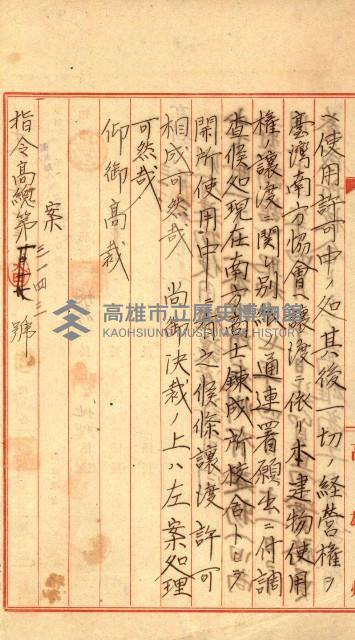 ヽ使用許可中ノ処其後一切ノ経営権ヲ
臺湾南方協會ニ譲渡ニ依リ本建物使用
権譲渡ニ関シ別紙ノ通連署願出ニ付調
査候処現在南方志士錬成所校舎トシテ
開所使用中ニ有之候條譲渡許可
相成可然哉 尚御決裁ノ上ハ左案処理
可然哉
仰御高裁
案
指令高總第三一四三號
高雄市立歷史博物館
KAOHSIUNG MUSEUM OF HISTORY
高雄州